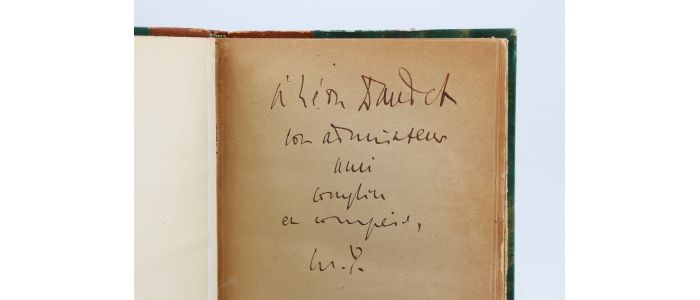 à Léon Daudet
son admirateur
ami
complice
et compère,
M. P.